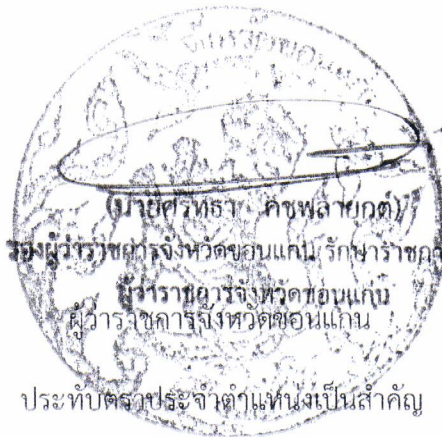 จังหวัดขอนแก่น
(นายศรัทธา คชพลายุกต์)
รองผู้ว่าราชการจังหวัดขอนแก่น รักษาราชการ
ผู้ว่าราชการจังหวัดขอนแก่น
ผู้ว่าราชการจังหวัดขอนแก่น
ประทับตราประจำตำแหน่งเป็นสำคัญ